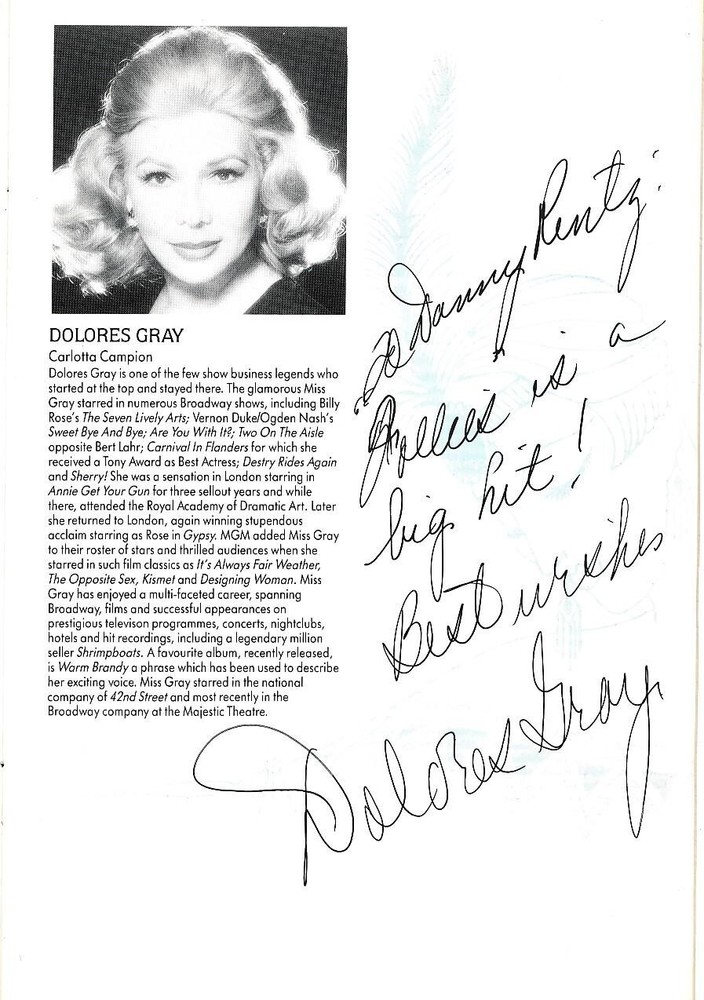 DOLORES GRAY
Carlotta Campion
Dolores Gray is one of the few show business legends who
started at the top and stayed there. The glamorous Miss
Gray starred in numerous Broadway shows, including Billy
Rose's The Seven Lively Arts; Vernon Duke/Ogden Nash's
Sweet Bye And Bye; Are You With It?; Two On The Aisle
opposite Bert Lahr; Carnival In Flanders for which she
received a Tony Award as Best Actress; Destry Rides Again
and Sherry! She was a sensation in London starring in
Annie Get Your Gun for three sellout years and while
there, attended the Royal Academy of Dramatic Art. Later
she returned to London, again winning stupendous
acclaim starring as Rose in Gypsy. MGM added Miss Gray
to their roster of stars and thrilled audiences when she
starred in such film classics as It's Always Fair Weather,
The Opposite Sex, Kismet and Designing Woman. Miss
Gray has enjoyed a multi-faceted career, spanning
Broadway, films and successful appearances on
prestigious televison programmes, concerts, nightclubs,
hotels and hit recordings, including a legendary million
seller Shrimpboats. A favourite album, recently released,
is Warm Brandy a phrase which has been used to describe
her exciting voice. Miss Gray starred in the national
company of 42nd Street and most recently in the
Broadway company at the Majestic Theatre.
To Danny Rentz:
"Follies" is a
big hit!
Best wishes
Dolores Gray